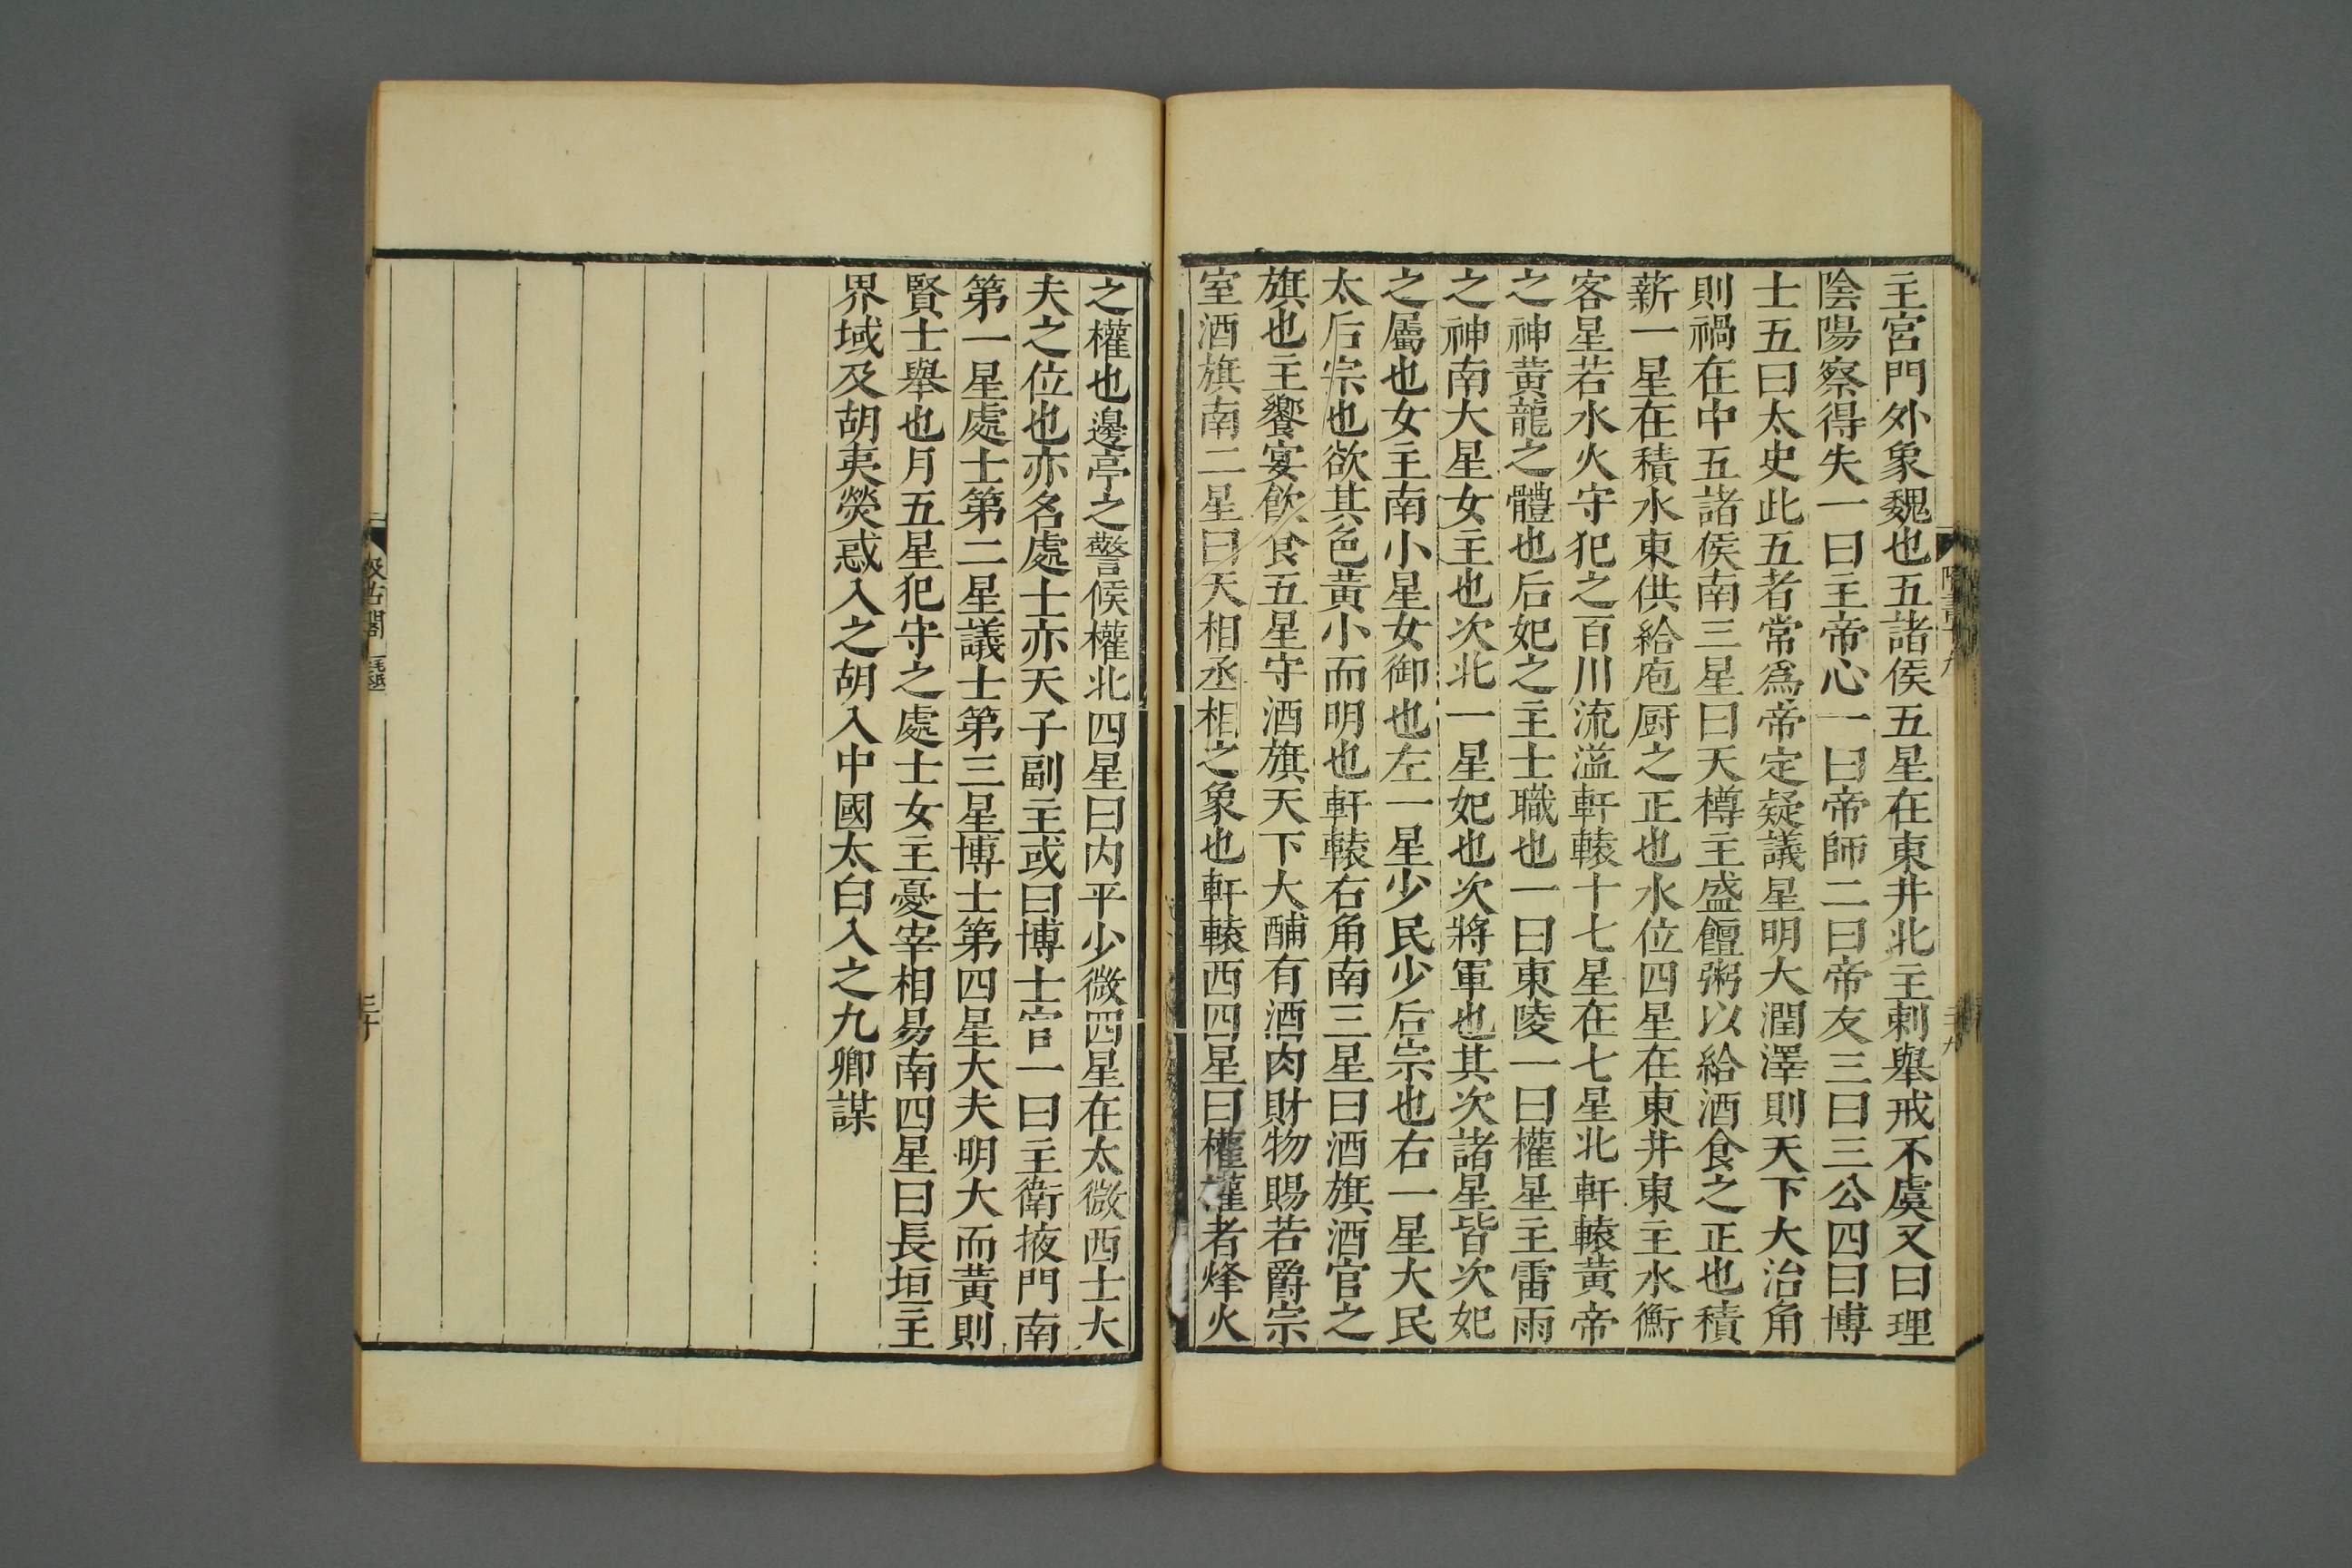 主宮門外象魏也五諸侯五星在東井北主刺舉戒不虞又曰理
陰陽察得失一曰主帝心一曰帝師二曰帝友三曰三公四曰博
士五曰太史此五者常爲帝定疑議星明大潤澤則天下大治角
則禍在中五諸侯南三星曰天樽主盛饘粥以給酒食之正也積
薪一星在積水東供給庖厨之正也水位四星在東井東主水衡
客星若水火守犯之百川流溢軒轅十七星在七星北軒轅黃帝
之神黃龍之體也后妃之主士職也一曰東陵一曰權星主雷雨
之神南大星女主也次北一星妃也次將軍也其次諸星皆次妃
之屬也女主南小星女御也左一星少民少后宗也右一星大民
太后宗也欲其色黃小而明也軒轅右角南三星曰酒旗酒官之
旗也主饗宴飲食五星守酒旗天下大酺有酒肉財物賜若爵宗
室酒旗南二星曰天相丞相之象也軒轅西四星曰權權者烽火
之權也邊亭之警候權北四星曰内平少微四星在太微西士大
夫之位也亦名處士亦天子副主或曰博士官一曰主衛掖門南
第一星處士第二星議士第三星博士第四星大夫明大而黃則
賢士舉也月五星犯守之處士女主憂宰相易南四星曰長垣主
界域及胡夷熒惑入之胡入中國太白入之九卿謀